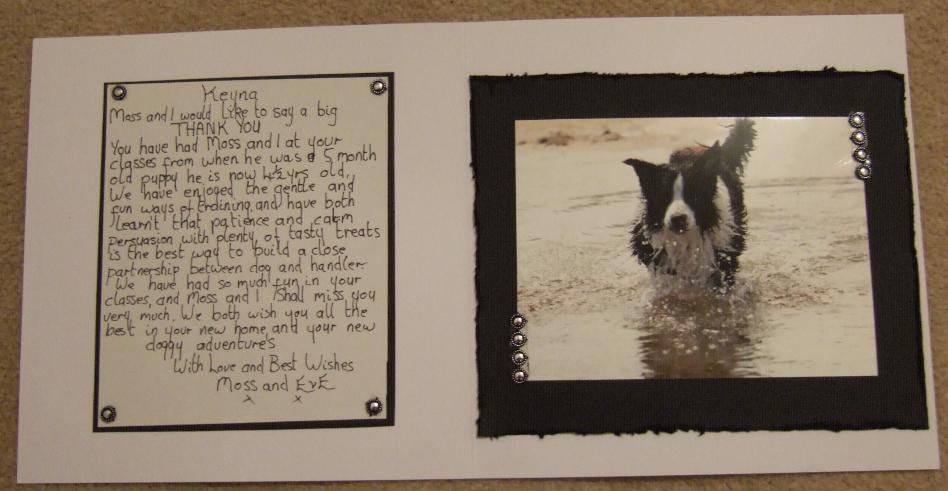 Keyna
Moss and I would like to say a big
THANK YOU
You have had Moss and I at your
classes from when he was a 5 month
old puppy he is now 4½yrs old,
We have enjoyed the gentle and
fun ways of training, and have both
learn't that patience and calm
persuasion with plenty of tasty treats
is the best way to build a close
partnership between dog and handler.
We have had so much fun in your
classes, and Moss and I shall miss you
very much. We both wish you all the
best in your new home, and your new
doggy adventure's
With Love and Best Wishes
Moss and EvE
x x